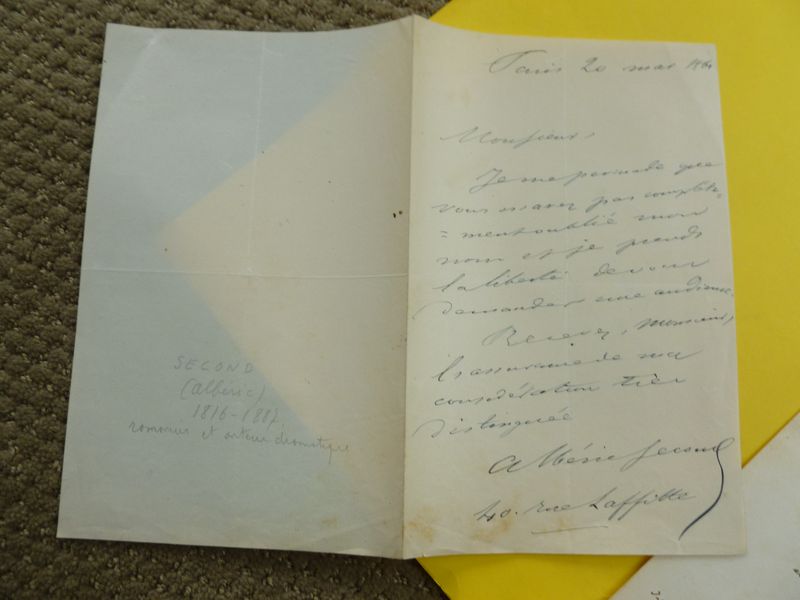 SECOND
(Albéric)
1816-1887
romancier et auteur dramatique
Paris 20 mai
Monsieur,
Je me persuade que
vous n'avez pas complète
= ment oublié mon
nom et je prends
la liberté de vous
demander une audience.
Recevez, monsieur,
l'assurance de ma
considération très
distinguée
Albéric Second
40. rue Laffitte